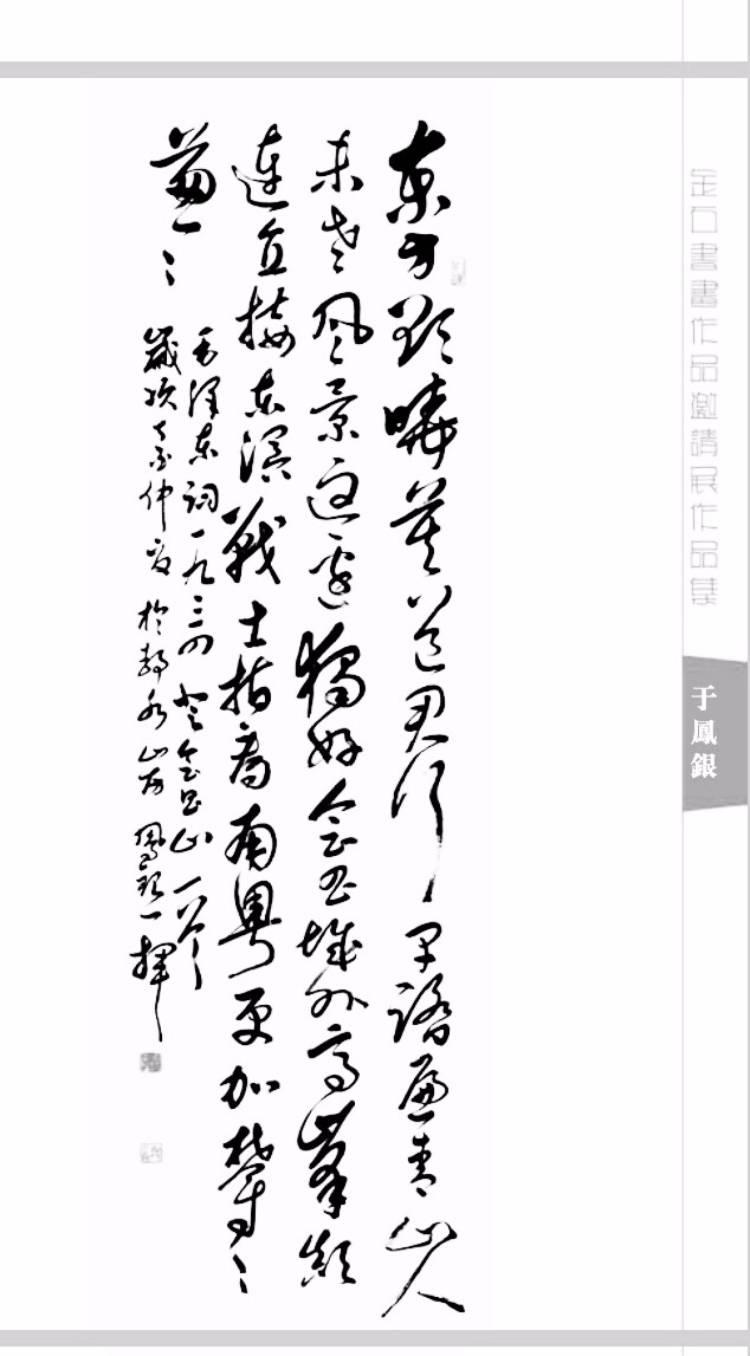 金石書畫作品邀請展作品集
于鳳銀
東方欲曉莫道君行早踏遍青山人
未老風景這邊獨好會昌城外高峰顛
連直接東溟戰士指看南粵更加鬱〻
蔥〻
毛澤東詞一九三四登會昌山一首
歲次仲夏於山房鳳銀揮